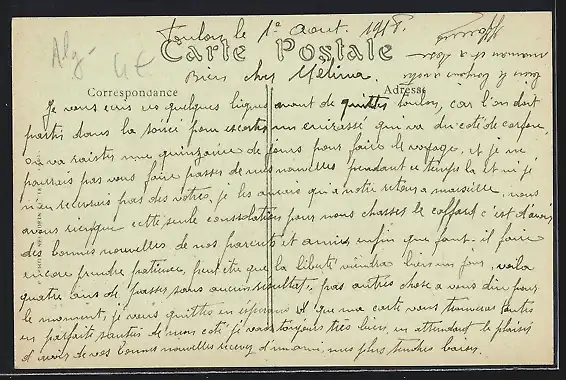 Toulon le 1er Aout. 1918.
Carte Postale
Bien cher Mélina
Correspondance
Adresse
Alg-
4E
Je vous ecris ces quelques lignes avant de quitter toulon, car l'on doit
partir dans la soirée pour escorter un cuirassé qui va du coté de corfou,
on va rester une quinzaine de jours pour faire le voyage, et je ne
pourrais pas vous faire passer de mes nouvelles pendant ce temps la et ni je
n'en recevrais pas des votres, je les aurais qu'a notre retour a marseille, nous
avons rien que cette seule consolation pour nous chasser le caffard c'est d'avoir
des bonnes nouvelles de nos parents et amies, enfin que faut-il faire
encore prendre patience, peut etre que la liberté viendra bien un jour, voila
quatre ans de passer sans aucun resultat. pas autres chose a vous dire pour
le moment, je vous quitte en esperant que ma carte vous trouveras toutes
en parfaite santé de mon coté je vais toujours très bien, en attendant le plaisir
d'avoir de vos bonnes nouvelles recevez d'un ami, mes plus tendres baisers.